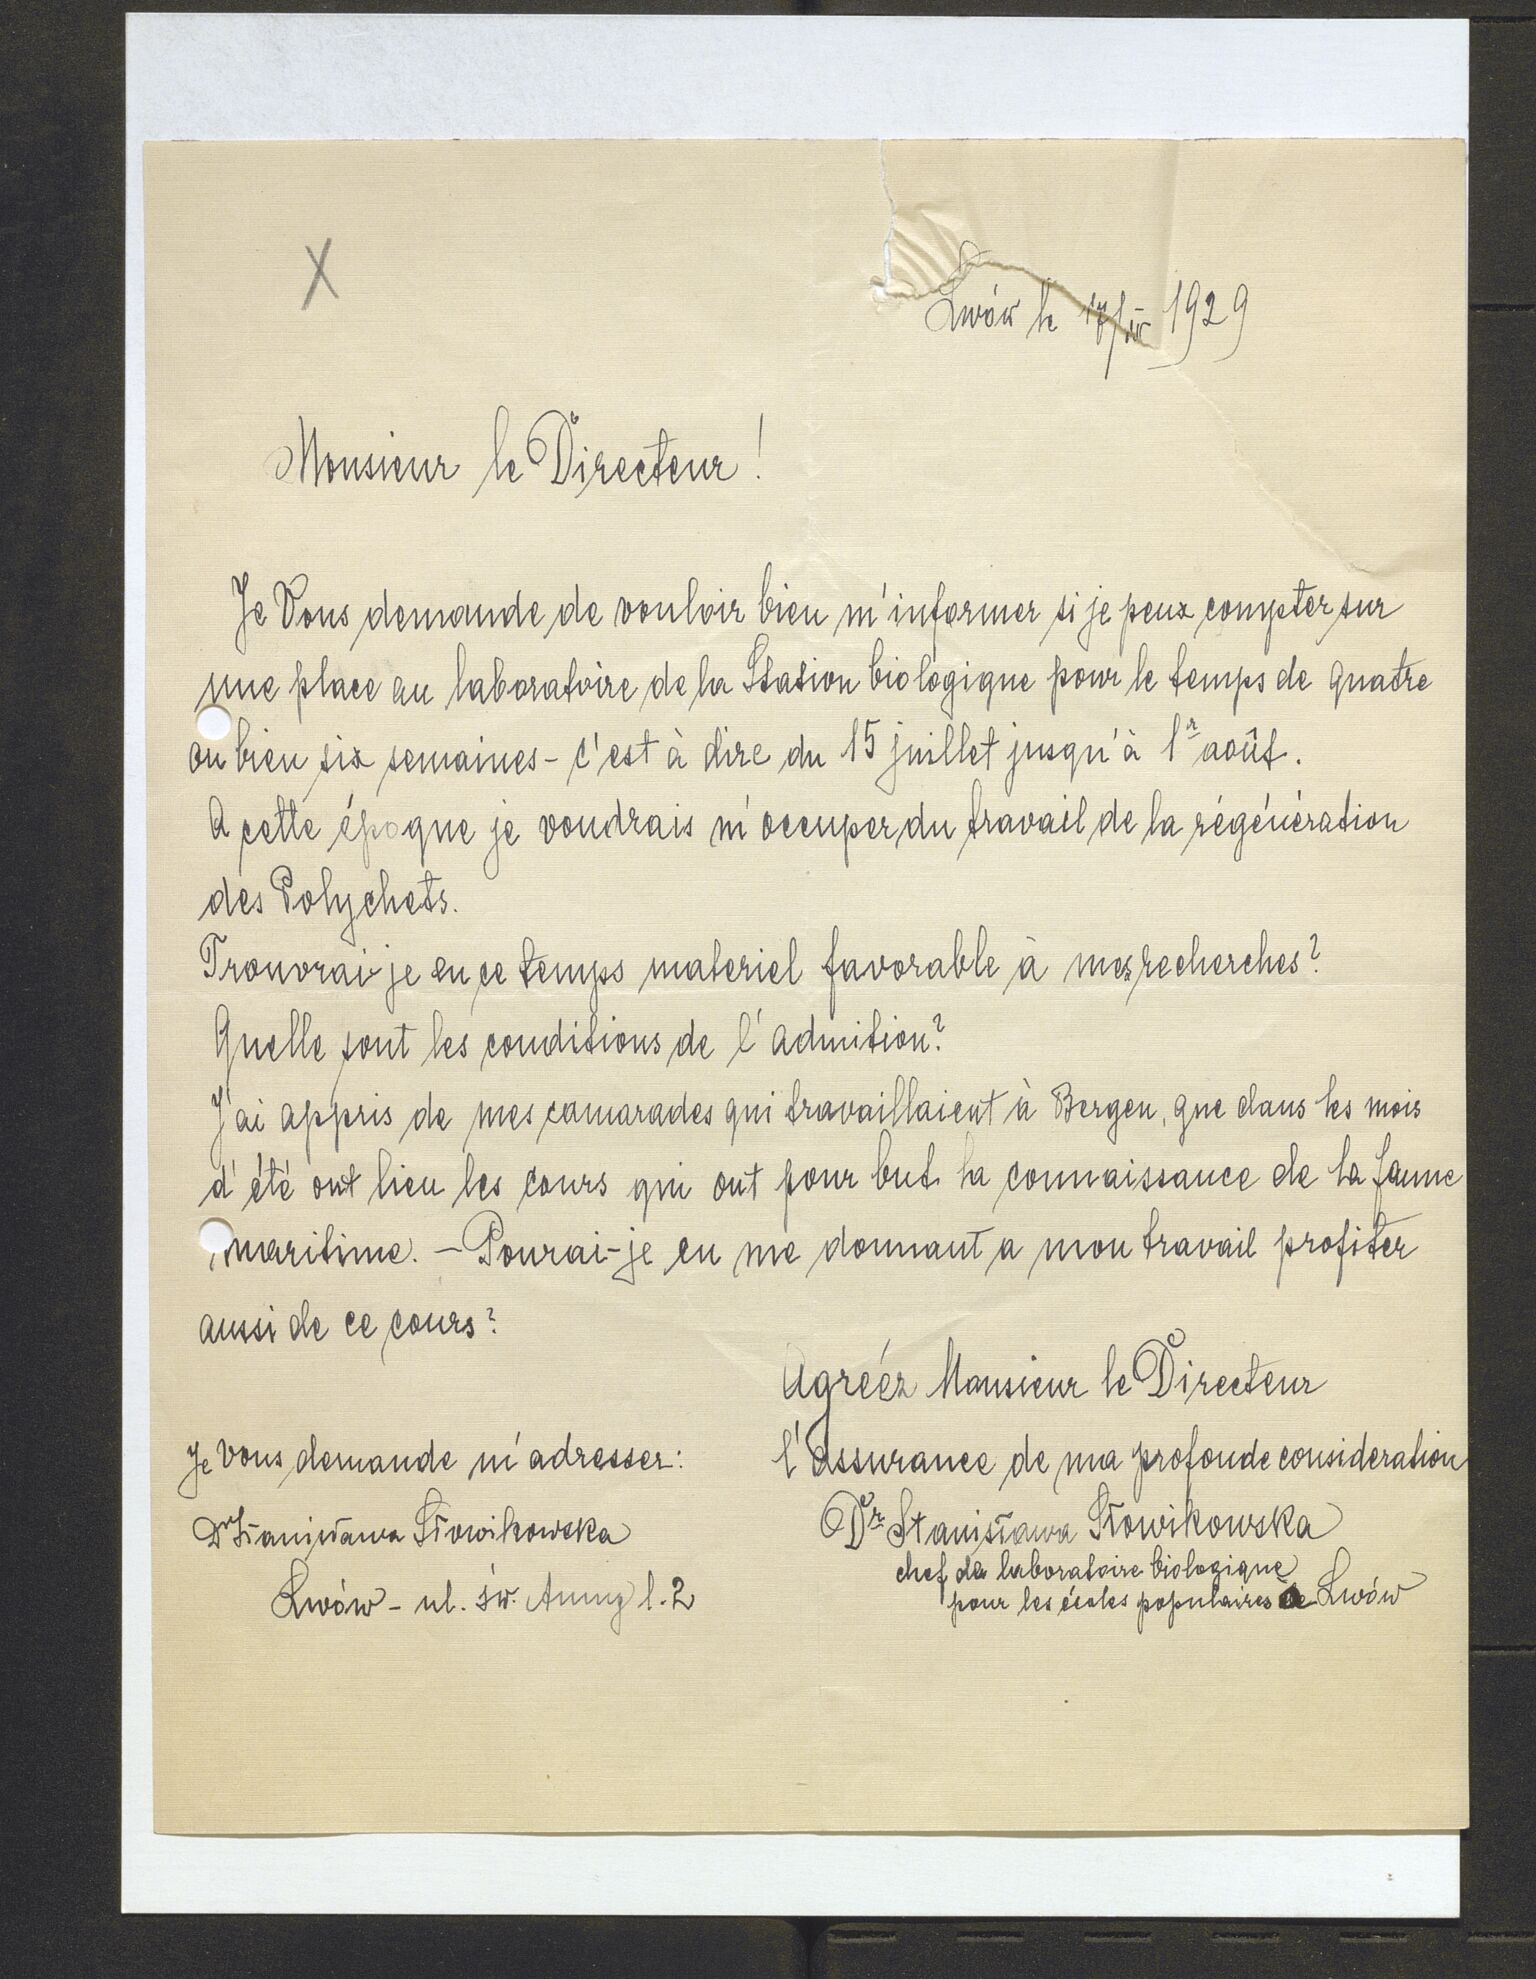 X
Lwów le 17/IV 1929
Monsieur le Directeur!
Je Vous demande de vouloir bien m'informer si je peux compter sur
une place au laboratoire de la Station biologique pour le temps de quatre
ou bien six semaines - c'est à dire du 15 juillet jusqu'à 1r août.
A cette époque je voudrais m'occuper du travail de la régénération
des Polychets.
Trouvrai-je en ce temps materiel favorable à mes recherches?
Quelle sont les conditions de l'admition?
J'ai appris de mes camarades qui travaillaient à Bergen, que dans les mois
d'été ont lieu les cours qui ont pour but la connaissance de la faune
maritime. - Pourai-je en me donnant a mon travail profiter
aussi de ce cours?
Agréez Monsieur le Directeur
l'assurance de ma profonde consideration
Dr Stanisława Słowikowska
chef de laboratoire biologique
pour les écoles populaires de Lwów
Je Vous demande m'adresser:
Dr Stanisława Słowikowska
Lwów - ul. św. Anny l. 2